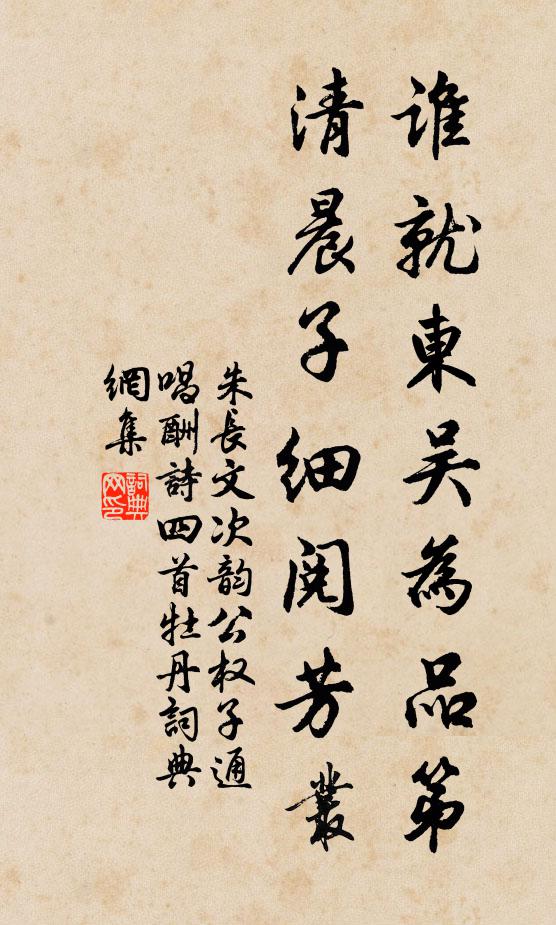 誰就東吴為品第
清晨子細閱芳叢
朱長文次韵公权子通
唱酬詩四首牡丹詞典
網集
詞典
网印